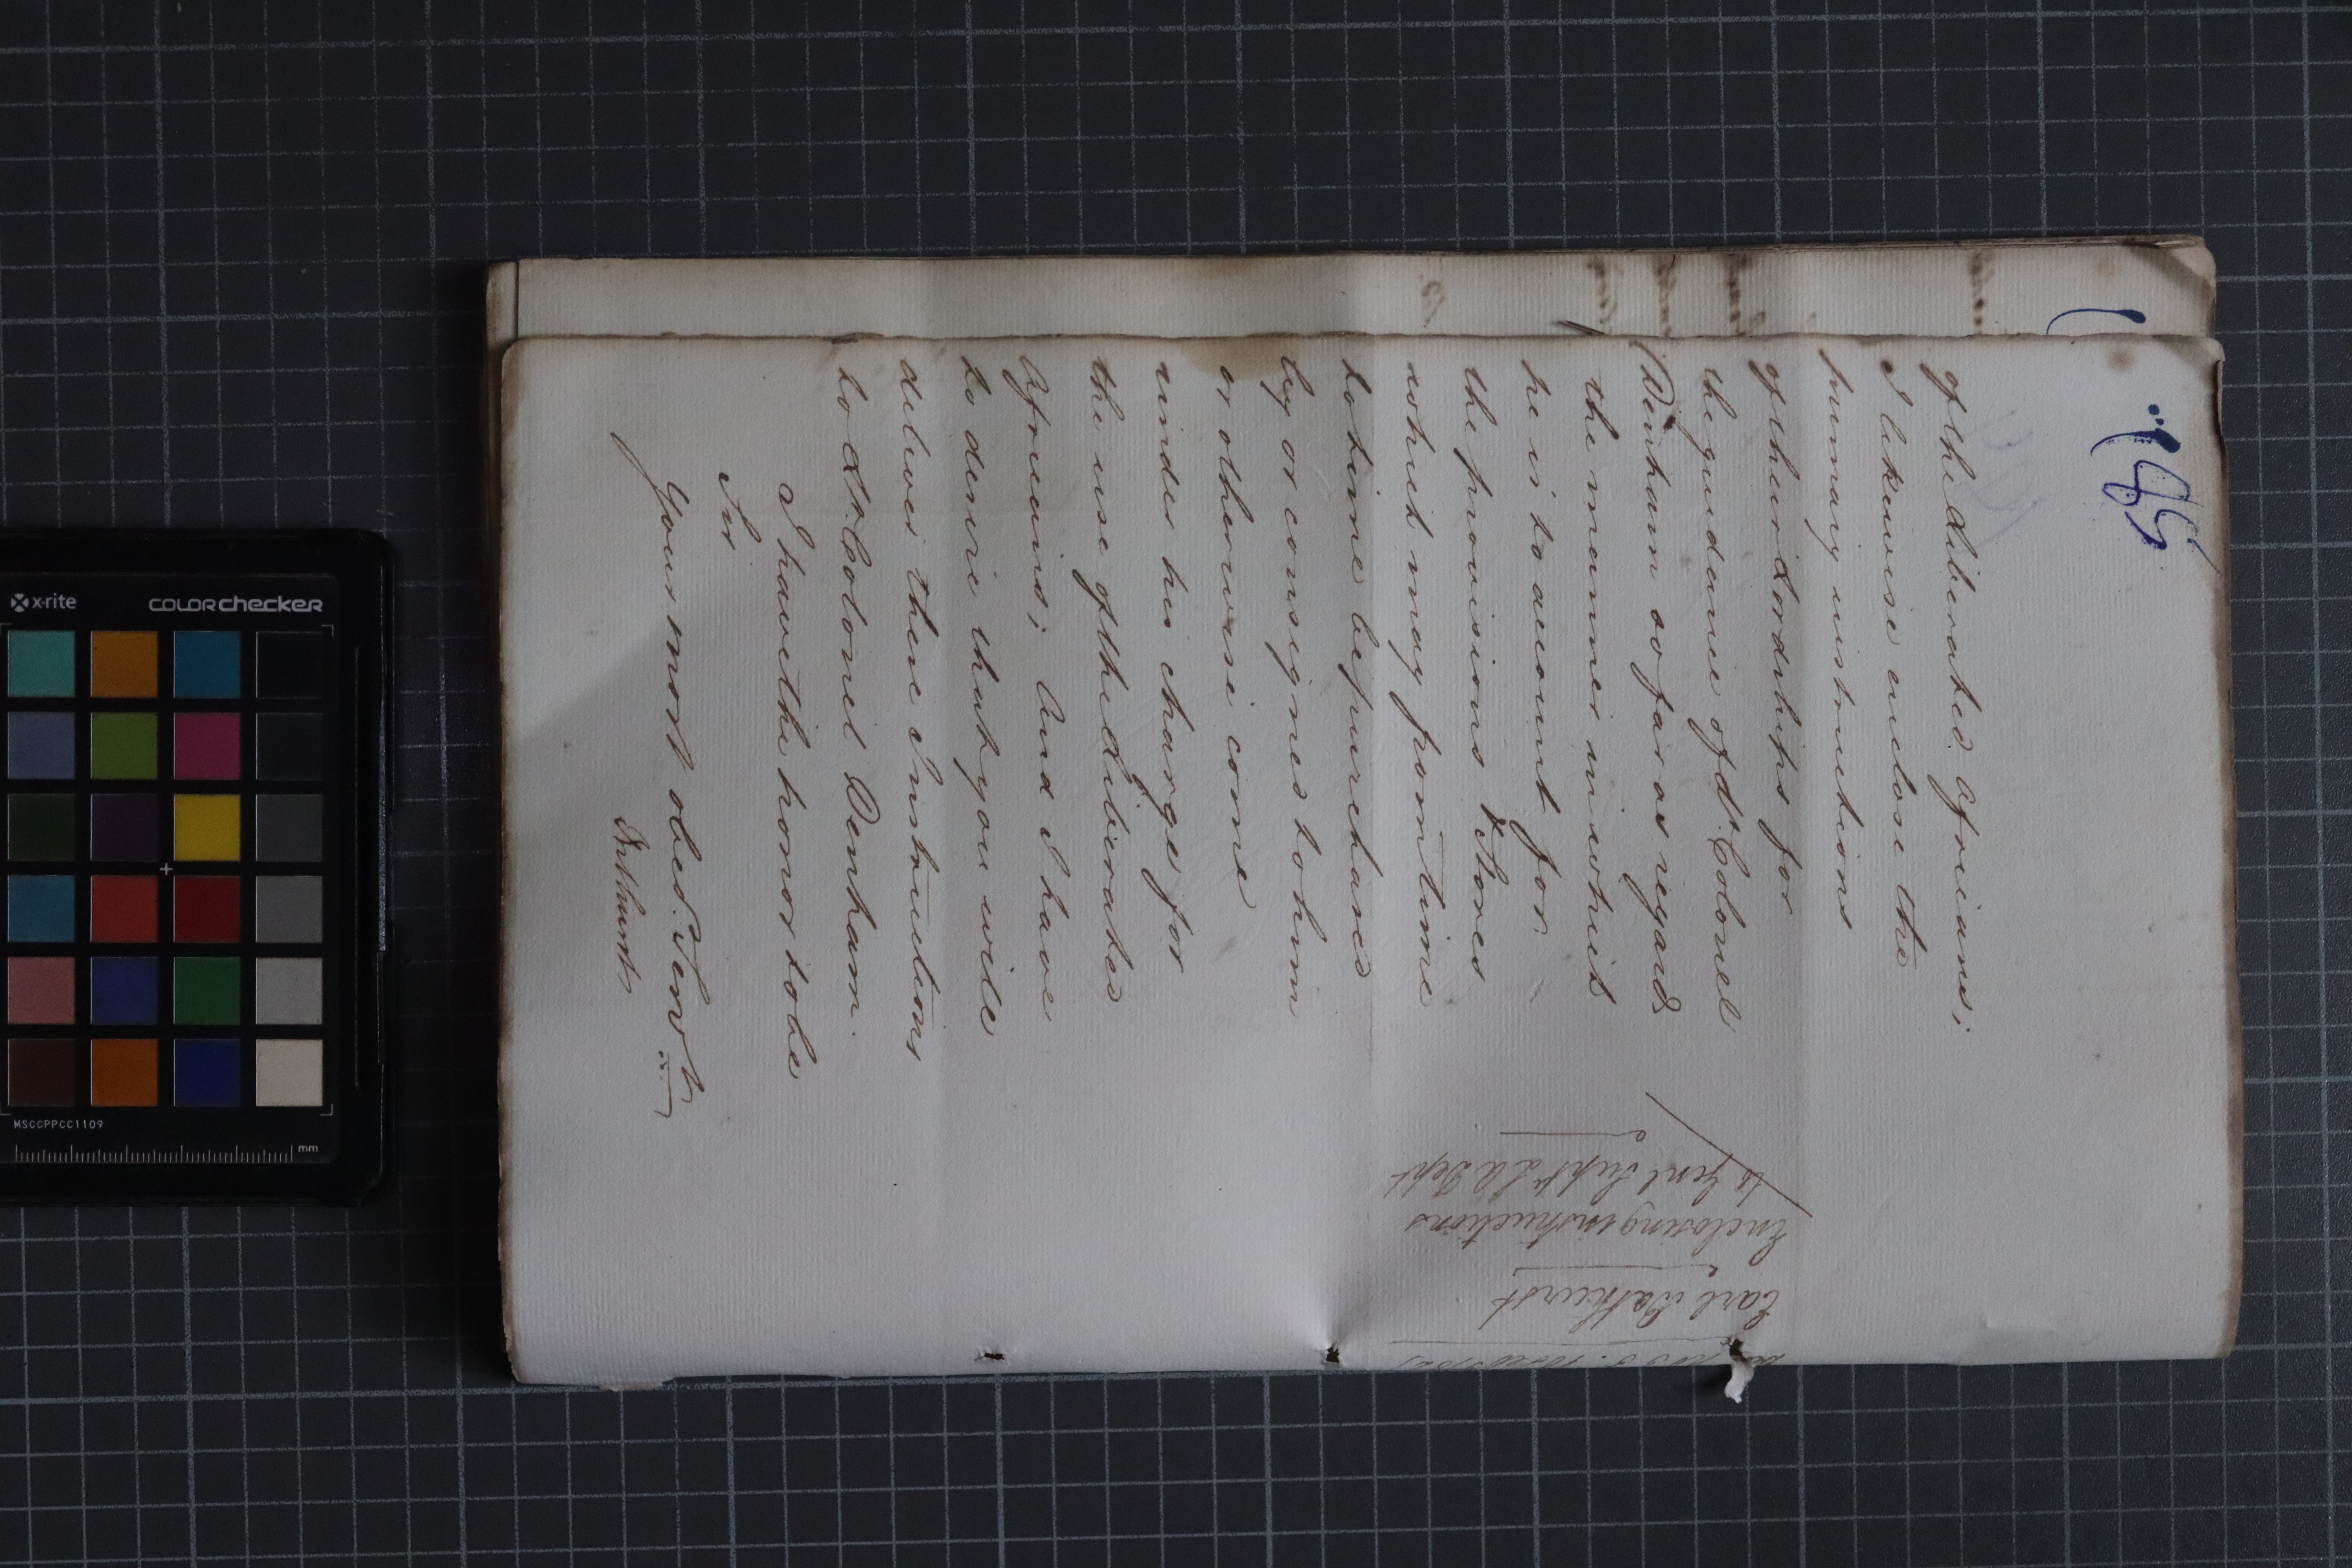 of the Liberated Africans;
I likewise enclose the
of their Lordships for
the guidance of Lt. Colonel
Denham so far as regards
the manner in which
he is to account for
the provisions & Stores
which may from time
to time be purchased
by or consigned to him
or otherwise come
under his charge for
the use of the Liberated
Africans; And I have
to desire that you will
deliver these Instructions
to Lt. Colonel Denham.
I have the honor to be
Sir
Your most obed. Servt
Bathurst
Earl Bathurst
Enclosing instructions
to Genl Supt L A Dept
x-rite
COLORchecker
MSCCPPCC1109
mm